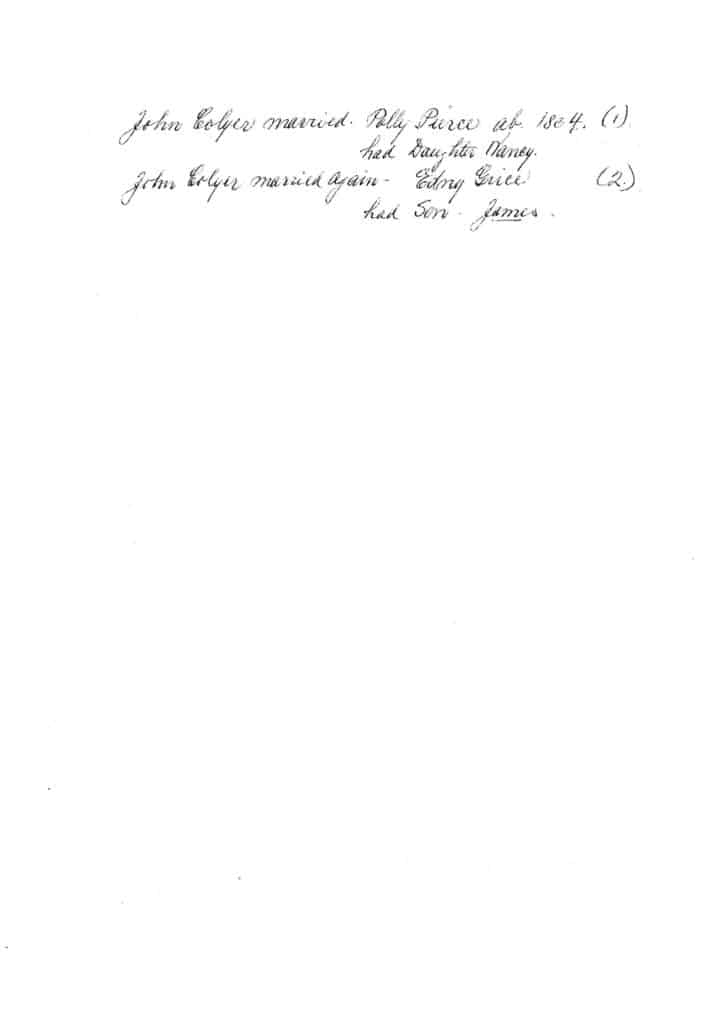 John Colyer married. Polly Pierce ab. 1804. (1).
had Daughter Nancy.
John Colyer married again - Edny Grice (2.)
had Son - James.